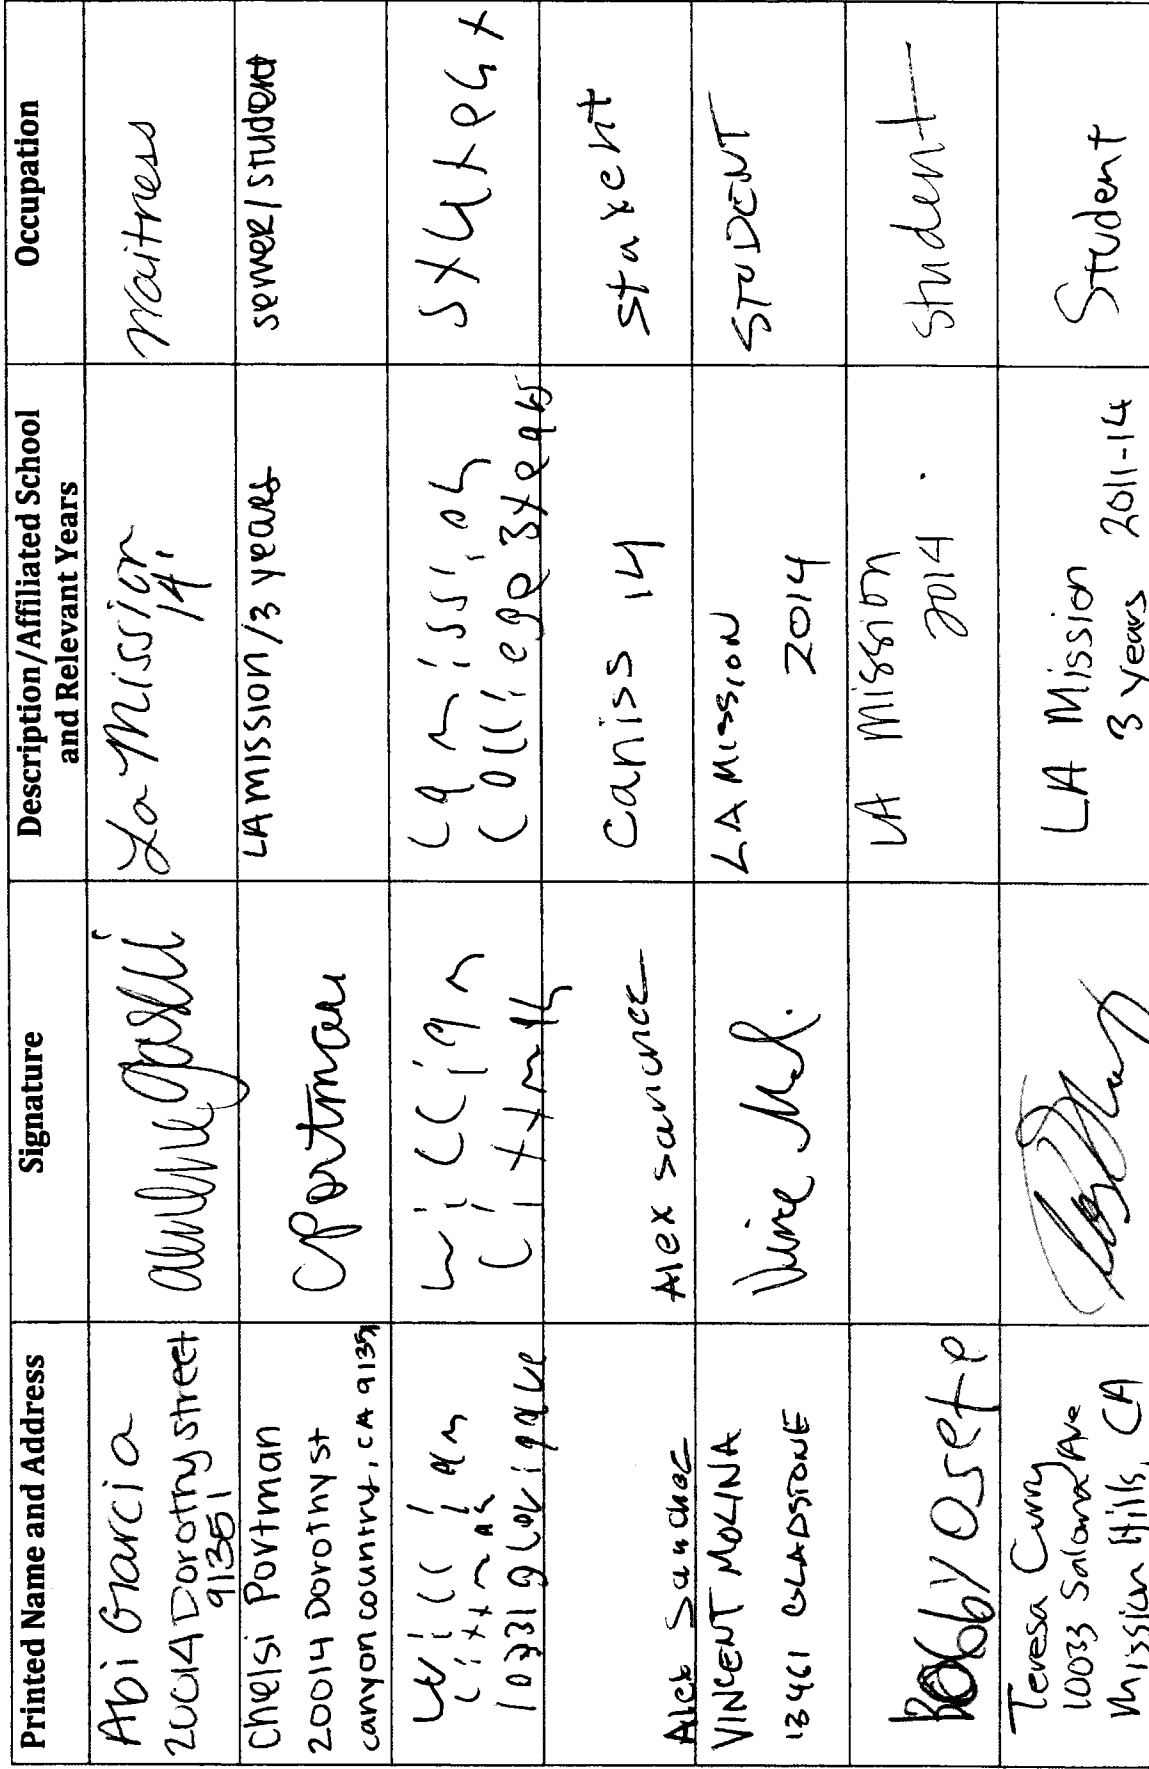 Printed Name and Address
Signature
Description/Affiliated School
and Relevant Years
Occupation
Abi Garcia
20014 Dorothy street
91351
La Mission
14
Waitress
Chelsi Portman
20014 Dorothy st
canyon country, CA 9135
CPortman
LA MISSION / 3 years
server/student
William
William
La mission
College 3 years
student
Alex Sanchec
Alex sanchez
14
student
VINCENT MOLINA
13461 GLADSTONE
LA MISSION
2014
STUDENT
Bobby
LA Mission
2014
Student
Teresa Curry
10033 Ave
Mission Hills, CA
LA Mission
3 years 2011-14
Student